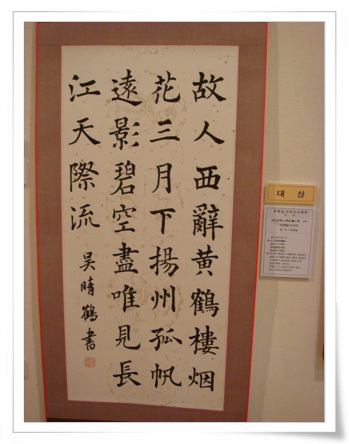 故人西辭黄鶴樓烟
花三月下揚州孤帆
遠影碧空盡唯見長
江天際流
吴晴鶴書
대상